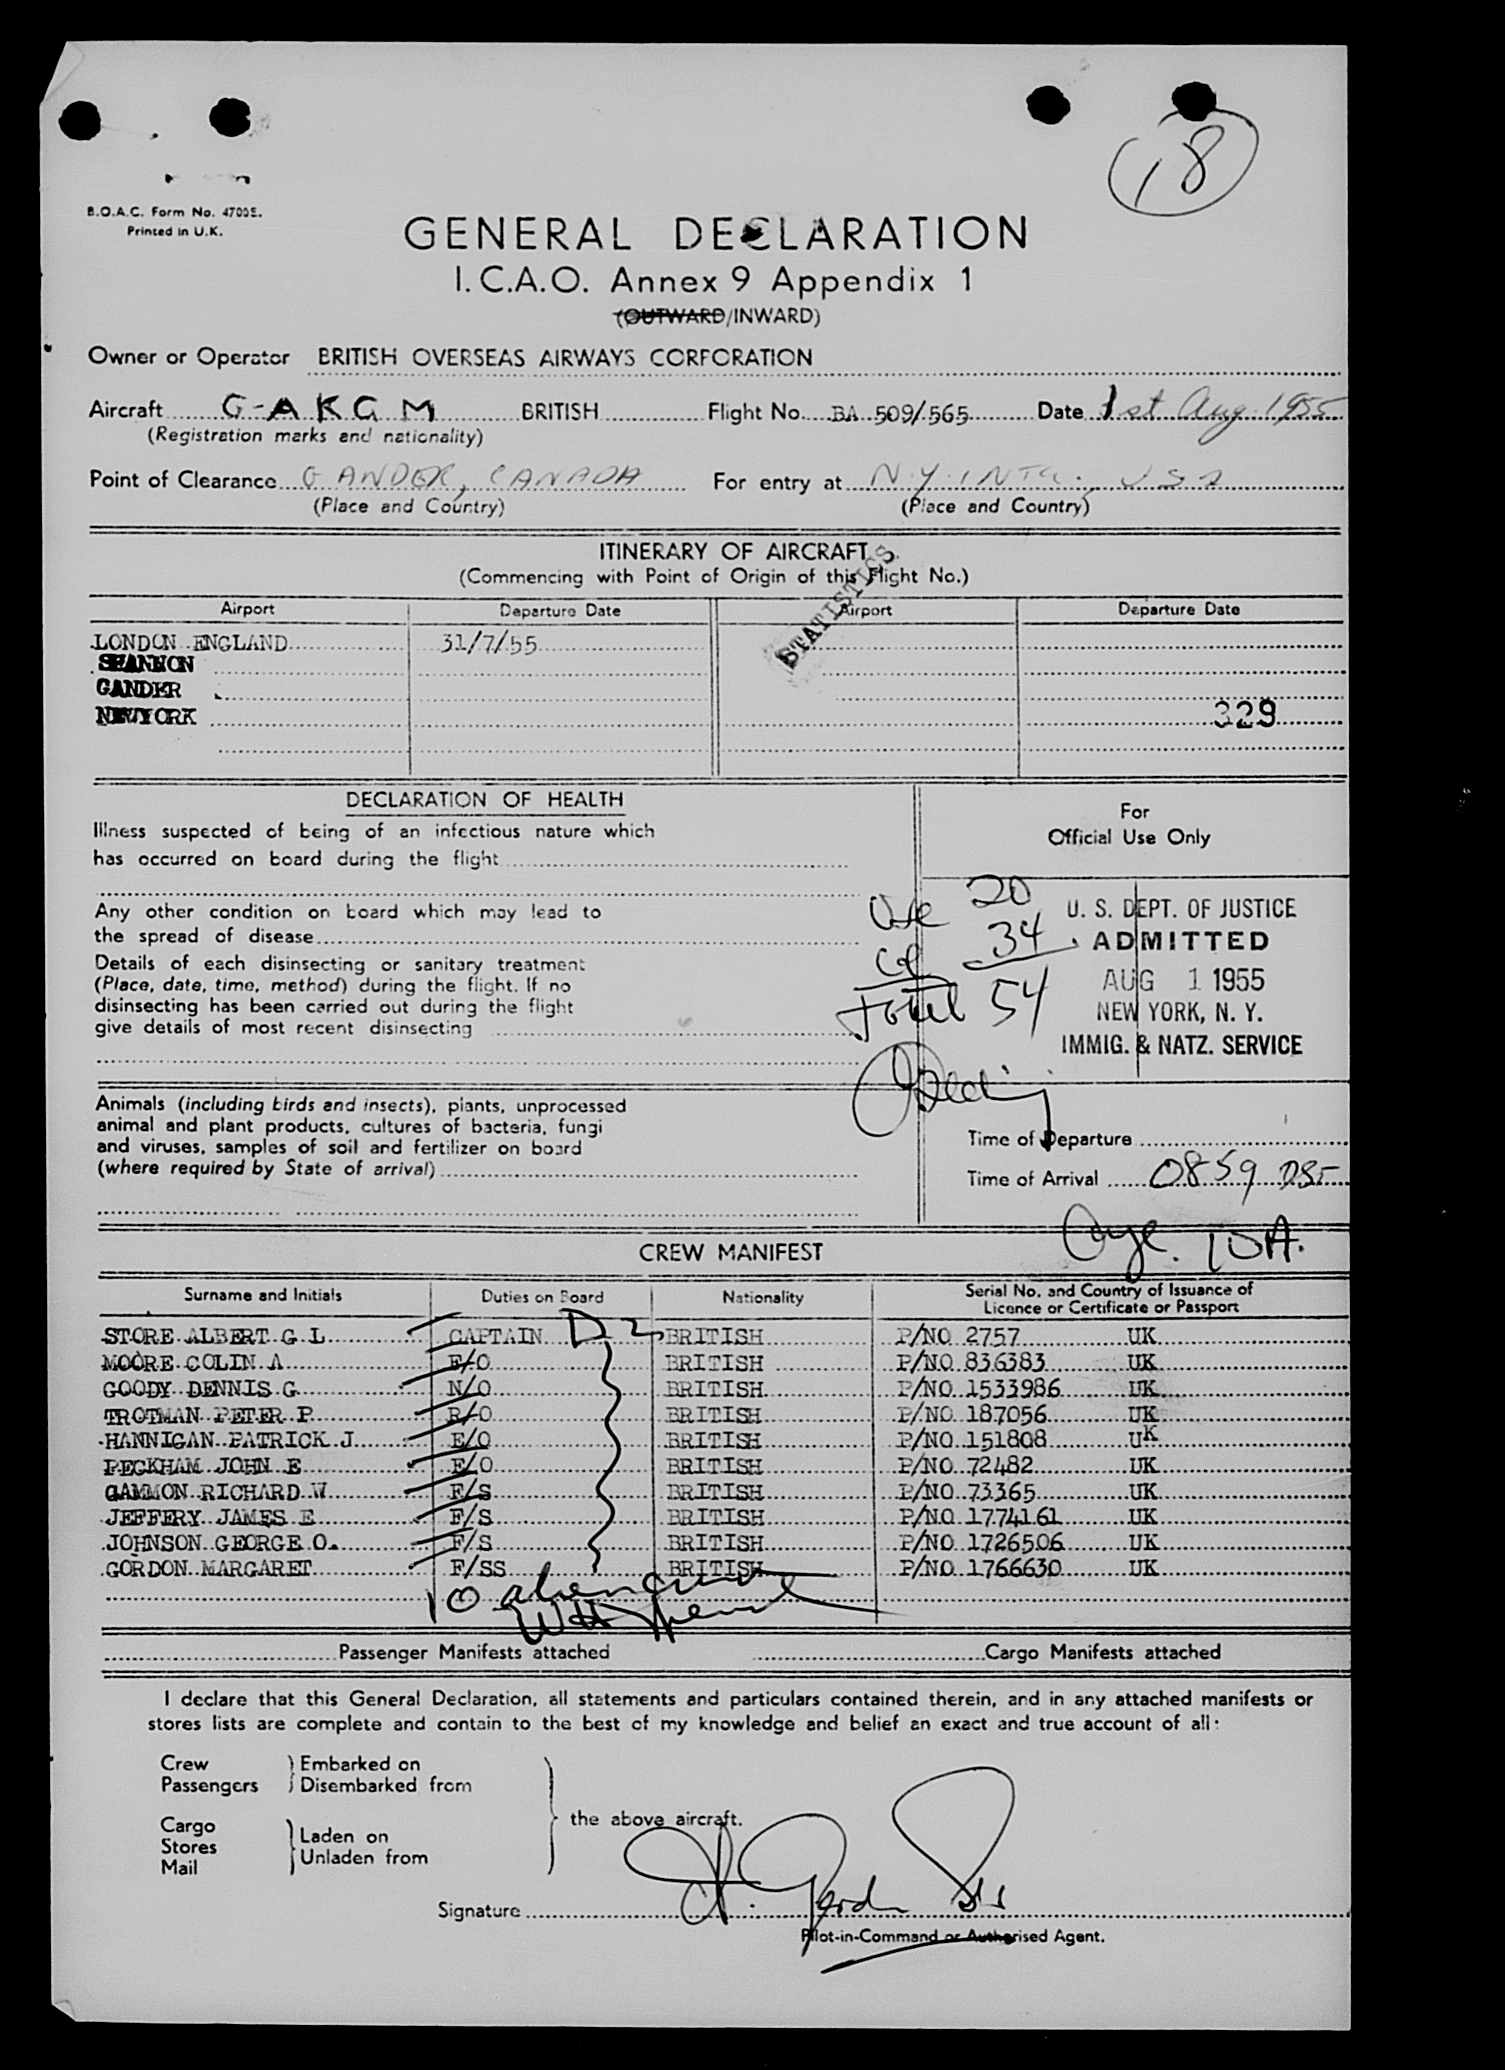 18
B.O.A.C. Form No. 4700S.
Printed in U.K.
GENERAL DECLARATION
I.C.A.O. Annex 9 Appendix 1
(OUTWARD/INWARD)
Owner or Operator BRITISH OVERSEAS AIRWAYS CORPORATION
Aircraft G-AKGM BRITISH Flight No. BA 509/565 Date 1st Aug. 1955
(Registration marks and nationality)
Point of Clearance GANDER, CANADA For entry at N.Y. INTL., USA
(Place and Country) (Place and Country)
ITINERARY OF AIRCRAFT
(Commencing with Point of Origin of this Flight No.)
STATISTICS
Airport Departure Date Airport Departure Date
LONDON ENGLAND 31/7/55
SHANNON
GANDER
NEWYORK 329
DECLARATION OF HEALTH
Illness suspected of being of an infectious nature which
has occurred on board during the flight
Any other condition on board which may lead to
the spread of disease
Details of each disinsecting or sanitary treatment
(Place, date, time, method) during the flight. If no
disinsecting has been carried out during the flight
give details of most recent disinsecting
For
Official Use Only
20
34
Total 54
U. S. DEPT. OF JUSTICE
ADMITTED
AUG 1 1955
NEW YORK, N. Y.
IMMIG. & NATZ. SERVICE
Animals (including birds and insects), plants, unprocessed
animal and plant products, cultures of bacteria, fungi
and viruses, samples of soil and fertilizer on board
(where required by State of arrival)
Time of Departure
Time of Arrival 0859 DST
CREW MANIFEST
Surname and Initials Duties on Board Nationality Serial No. and Country of Issuance of
Licence or Certificate or Passport
STORE ALBERT G L CAPTAIN D2 BRITISH P/NO 2757 UK
MOORE COLIN A F/O BRITISH P/NO 836383 UK
GOODY DENNIS G N/O BRITISH P/NO 1533986 UK
TROTMAN PETER P R/O BRITISH P/NO 187056 UK
HANNIGAN PATRICK J E/O BRITISH P/NO 151808 UK
PECKHAM JOHN E E/O BRITISH P/NO 72482 UK
GAMMON RICHARD W F/S BRITISH P/NO 73365 UK
JEFFERY JAMES E F/S BRITISH P/NO 1774161 UK
JOHNSON GEORGE O. F/S BRITISH P/NO 1726506 UK
GORDON MARGARET F/SS BRITISH P/NO 1766630 UK
10 alien crew
Passenger Manifests attached Cargo Manifests attached
I declare that this General Declaration, all statements and particulars contained therein, and in any attached manifests or
stores lists are complete and contain to the best of my knowledge and belief an exact and true account of all:
Crew
Passengers
Embarked on
Disembarked from
Cargo
Stores
Mail
Laden on
Unladen from
the above aircraft.
Signature
Pilot-in-Command or Authorised Agent.